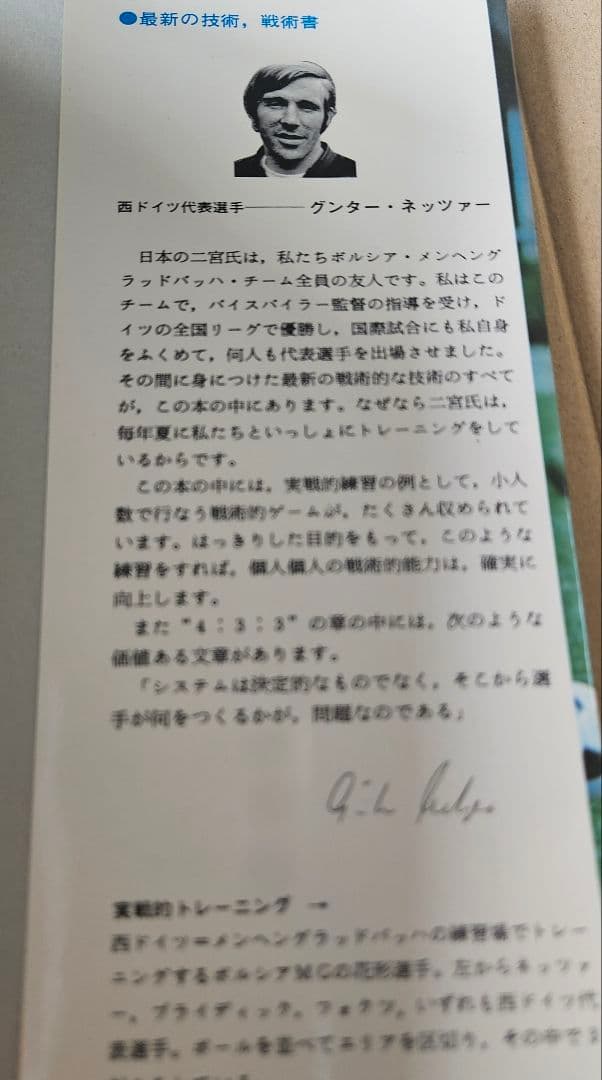 ●最新の技術，戦術書
西ドイツ代表選手───グンター・ネッツァー
日本の二宮氏は，私たちボルシア・メンヘング
ラッドバッハ・チーム全員の友人です。私はこの
チームで，バイスバイラー監督の指導を受け，ド
イツの全国リーグで優勝し，国際試合にも私自身
をふくめて，何人も代表選手を出場させました。
その間に身につけた最新の戦術的な技術のすべて
が，この本の中にあります。なぜなら二宮氏は，
毎年夏に私たちといっしょにトレーニングをして
いるからです。
この本の中には，実戦的練習の例として，小人
数で行なう戦術的ゲームが，たくさん収められて
います。はっきりした目的をもって，このような
練習をすれば，個人個人の戦術的能力は，確実に
向上します。
また"4：3：3"の章の中には，次のような
価値ある文章があります。
「システムは決定的なものでなく，そこから選
手が何をつくるかが，問題なのである」
実戦的トレーニング →
西ドイツ＝メンヘングラッドバッハの練習場でトレー
ニングするボルシアMGの花形選手。左からネッツァ
ー，ブライディック，フォクツ。いずれも西ドイツ代
表選手。ボールを並べてエリアを区切り，その中で